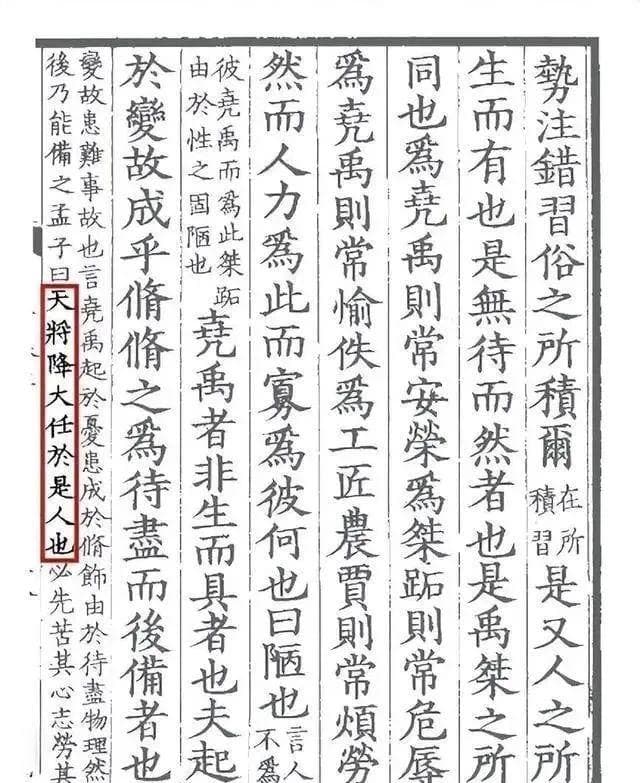 勢注錯習俗之所積爾在所積習是又人之所
生而有也是無待而然者也是禹桀之所
同也爲堯禹則常安榮爲桀跖則常危辱
爲堯禹則常愉佚爲工匠農賈則常煩勞
然而人力爲此而寡爲彼何也曰陋也言人不爲
彼堯禹而爲此桀跖由於性之固陋也堯禹者非生而具者也夫起
於變故成乎脩脩之爲待盡而後備者也
變故患難事故也言堯禹起於憂患成於脩飾由於待盡物理然
後乃能備之孟子曰天將降大任於是人也必先苦其心志勞其